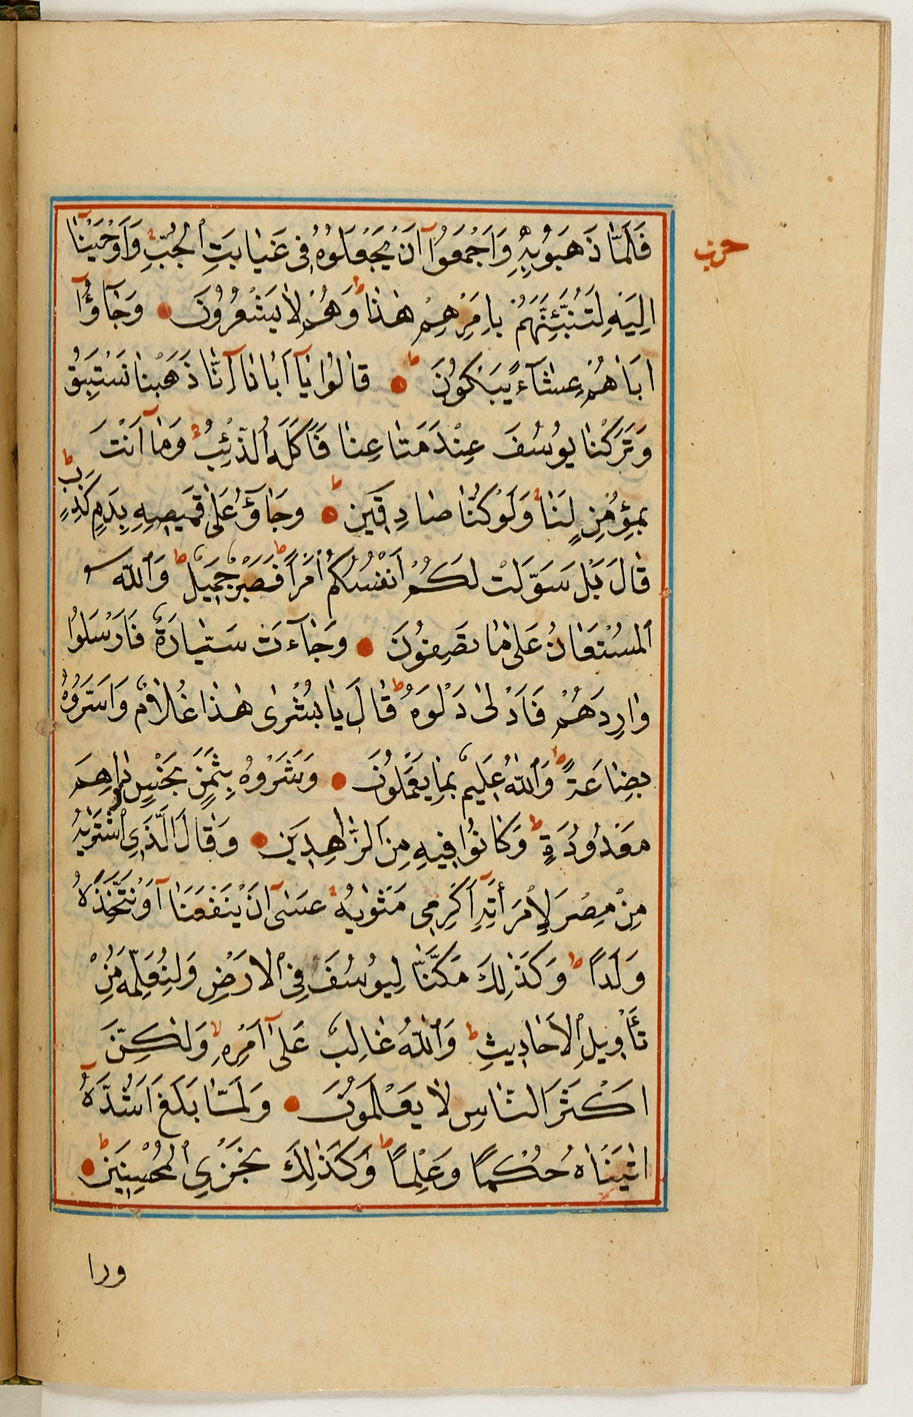 حزب
فَلَمَّا ذَهَبُوا بِهِ وَاَجْمَعُوا اَنْ يَجْعَلُوهُ فِى غَيَابَتِ الْجُبِّ وَاَوْحَيْنَا
اِلَيْهِ لَتُنَبِّئَنَّهُمْ بِاَمْرِهِمْ هٰذَا وَهُمْ لَا يَشْعُرُونَ وَجَاؤُا
اَبَاهُمْ عِشَاءً يَبْكُونَ قَالُوا يَا اَبَانَا اِنَّا ذَهَبْنَا نَسْتَبِقُ
وَتَرَكْنَا يُوسُفَ عِنْدَ مَتَاعِنَا فَاَكَلَهُ الذِّئْبُ وَمَا اَنْتَ
بِمُؤْمِنٍ لَنَا وَلَوْ كُنَّا صَادِقِينَ وَجَاؤُ عَلٰى قَمِيصِهِ بِدَمٍ كَذِبٍ
قَالَ بَلْ سَوَّلَتْ لَكُمْ اَنْفُسُكُمْ اَمْرًا فَصَبْرٌ جَمِيلٌ وَاللّٰهُ
الْمُسْتَعَانُ عَلٰى مَا تَصِفُونَ وَجَاءَتْ سَيَّارَةٌ فَاَرْسَلُوا
وَارِدَهُمْ فَاَدْلٰى دَلْوَهُ قَالَ يَا بُشْرٰى هٰذَا غُلَامٌ وَاَسَرُّوهُ
بِضَاعَةً وَاللّٰهُ عَلِيمٌ بِمَا يَعْمَلُونَ وَشَرَوْهُ بِثَمَنٍ بَخْسٍ دَرَاهِمَ
مَعْدُودَةٍ وَكَانُوا فِيهِ مِنَ الزَّاهِدِينَ وَقَالَ الَّذِى اشْتَرٰيهُ
مِنْ مِصْرَ لِامْرَاَتِهِ اَكْرِمِى مَثْوٰيهُ عَسٰى اَنْ يَنْفَعَنَا اَوْ نَتَّخِذَهُ
وَلَدًا وَكَذٰلِكَ مَكَّنَّا لِيُوسُفَ فِى الْاَرْضِ وَلِنُعَلِّمَهُ مِنْ
تَأْوِيلِ الْاَحَادِيثِ وَاللّٰهُ غَالِبٌ عَلٰى اَمْرِهِ وَلٰكِنَّ
اَكْثَرَ النَّاسِ لَا يَعْلَمُونَ وَلَمَّا بَلَغَ اَشُدَّهُ
اٰتَيْنَاهُ حُكْمًا وَعِلْمًا وَكَذٰلِكَ نَجْزِى الْمُحْسِنِينَ
ورا